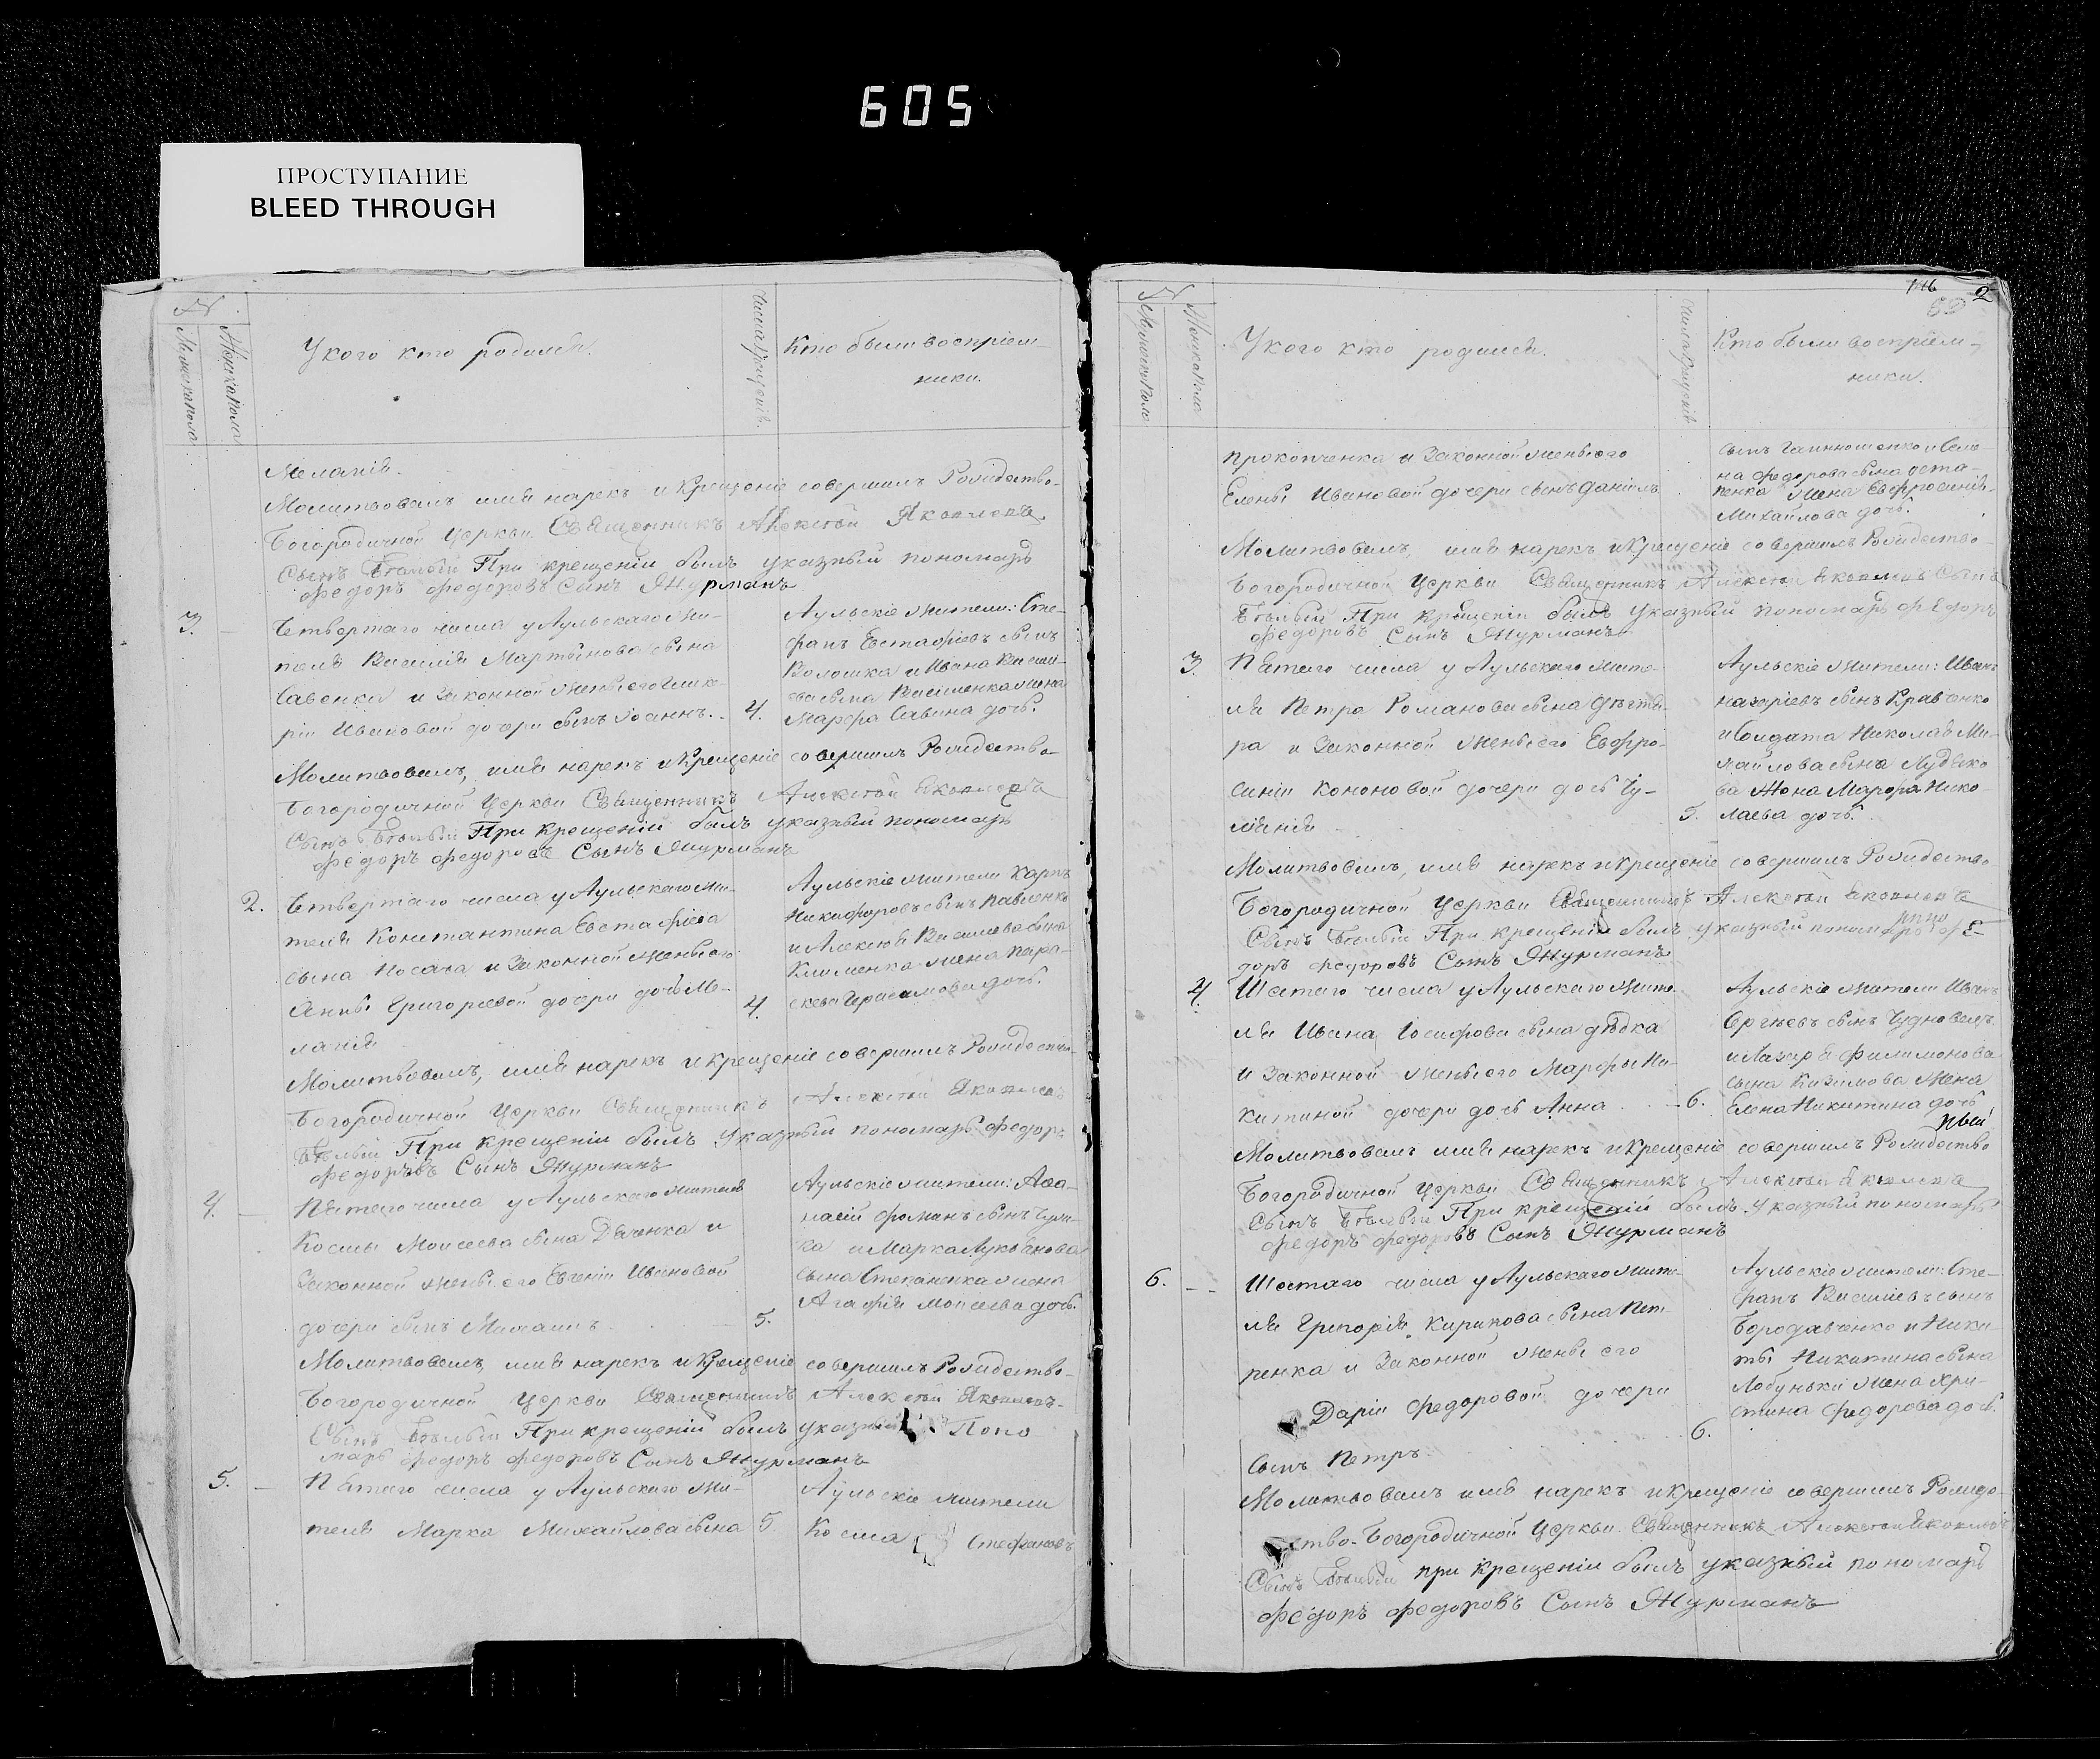 605
ПРОСТУПАНИЕ
BLEED THROUGH
№
Мужеска пола
Женска пола
У кого кто родился.
Числа крещенія.
Кто были воспріем-
ники.
Меланія.
Молитвовалъ имя нарекъ и крещеніе совершилъ Рождество-
Богородичной Церкви Священникъ Алексѣй Яковлевъ
Сынъ Бѣлый При крещеніи былъ указный пономарь
Федоръ Федоровъ Сынъ Журманъ
3.
Четвертаго числа у Аульскаго жи-
теля Василія Мартынова сына
Савенка и законной жены его
ріи Ивановой дочери сынъ Іоаннъ.
4.
Аульскіе жители: Сте-
фанъ Евстафіевъ сынъ
Волошка и Ивана Василі-
ева сына Василенка жена
Марфа Савина дочь.
Молитвовалъ, имя нарекъ и крещеніе совершилъ Рождество-
Богородичной Церкви Священникъ Алексѣй Яковлевъ
Сынъ Бѣлый При крещеніи былъ указный пономарь
Федоръ Федоровъ Сынъ Журманъ
2.
Четвертаго числа у Аульскаго жи-
теля Константина Евстафіева
сына Носача и законной жены его
Анны Григорьевой дочери дочь Ме-
ланія
4.
Аульскіе жители Карпъ
Никифоровъ сынъ Павленко
и Алексѣя Василіева сына
Клименка жена Пара-
скева Герасимова дочь.
Молитвовалъ, имя нарекъ и крещеніе совершилъ Рождество-
Богородичной Церкви Священникъ Алексѣй Яковлевъ
Бѣлый При крещеніи былъ Указный пономарь Федоръ
Федоровъ Сынъ Журманъ
4.
Пятаго числа у Аульскаго жителя
Космы Моисеева сына Дяченка и
Законной жены его Евгеніи Ивановой
дочери сынъ Михаилъ
5.
Аульскіе жители: Афа-
насій сынъ
ка и Марка Лукьянова
сына Степаненка жена
Агафія Моисеева дочь.
Молитвовалъ, имя нарекъ и крещеніе совершилъ Рождество-
Богородичной Церкви Священникъ Алексѣй Яковлевъ
Сынъ Бѣлый При крещеніи былъ указный Поно
марь Федоръ Федоровъ Сынъ Журманъ
5.
Пятаго числа у Аульскаго жи-
теля Марка Михайлова сына
5
Аульскіе жители
Косма Стефановъ
2
№
Мужеска пола
Женска пола
У кого кто родился.
Числа крещенія
Кто были воспріем-
ники.
Прокопченка и Законной жены его
Елены Ивановой дочери сынъ Даніилъ
сынъ и Семе-
на Федорова сына Оста-
пенка жена Евфросинія
Михайлова дочь.
Молитвовалъ, имя нарекъ и крещеніе совершилъ Рождество-
Богородичной Церкви Священникъ Алексѣй Яковлевъ Сынъ
Бѣлый При крещеніи былъ Указный пономарь Федоръ
Федоровъ Сынъ Журманъ
3.
Пятаго числа у Аульскаго жите-
ля Петра Романова сына
ра и Законной жены его Евфро-
синіи Кононовой дочери дочь Іу-
ліянія
5.
Аульскіе жители: Иванъ
Назаріевъ сынъ Кравченко
и Солдата Николая Ми-
хайлова сына
ва Жена Марфа Нико-
лаева дочь.
Молитвовалъ, имя нарекъ и крещеніе совершилъ Рождество
Богородичной Церкви Священникъ Алексѣй Яковлевъ
Сынъ Бѣлый При крещеніи былъ указный пономарь Фе
доръ Федоровъ Сынъ Журманъ
4.
Шестаго числа у Аульскаго жите-
ля Ивана Іосифова сына Дѣдка
и Законной жены его Марфы Ни-
китиной дочери дочь Анна
6.
Аульскіе жители Иванъ
Сергѣевъ сынъ Чудновецъ
и Лазаря Филимонова
сына Казимова жена
Елена Никитина дочь
Молитвовалъ имя нарекъ и крещеніе совершилъ Рождество
Богородичной Церкви Священникъ Алексѣй Яковлевъ
Сынъ Бѣлый При крещеніи былъ указный пономарь
Федоръ Федоровъ Сынъ Журманъ
6.
Шестаго числа у Аульскаго жите-
ля Григорія Карпова сына Пет-
ренка и Законной жены его
Даріи Федоровой дочери
Сынъ Петръ
6.
Аульскіе жители: Сте-
фанъ Василіевъ сынъ
Бородавченко и Ники-
ты Никитина сына
Лобуньки жена Хри-
стина Федорова дочь.
Молитвовалъ имя нарекъ и крещеніе совершилъ Рожде-
ство-Богородичной Церкви Священникъ Алексѣй Яковлевъ
Сынъ Бѣлый при крещеніи былъ указный пономарь
Федоръ Федоровъ Сынъ Журманъ